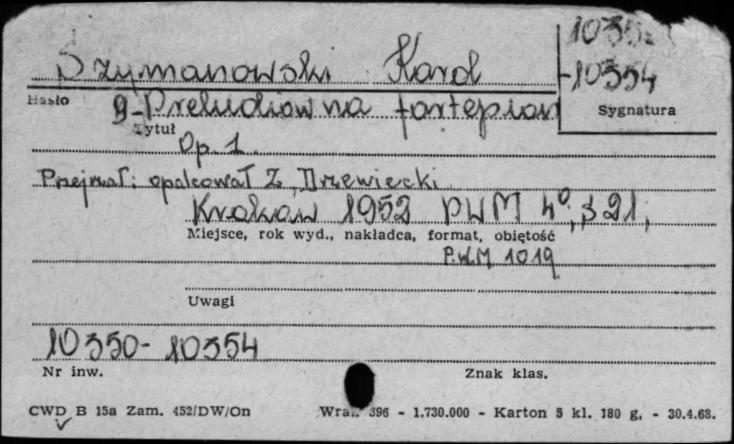 1035
Szymanowski Karol
-10354
Hasło
Sygnatura
9-Preludiów na fortepian
Tytuł
Op. 1
Przejrzał i opalcował Z. Drzewiecki
Kraków 1952 PWM 4°, s 21,
Miejsce, rok wyd., nakładca, format, objętość
P.W.M 1019
Uwagi
10350-10354
Nr inw.
Znak klas.
CWD B 15a Zam. 452/DW/On
396 - 1.730.000 - Karton 5 kl. 180 g. - 30.4.68.